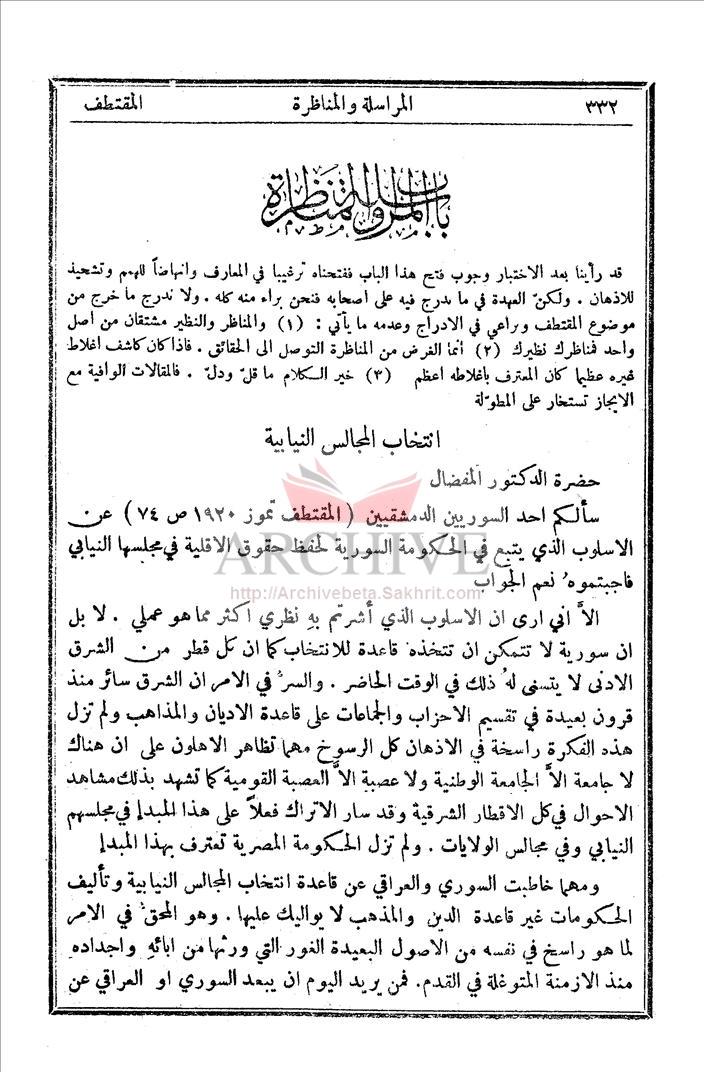 ٣٣٢ المراسلة والمناظرة المقتطف
باب المراسلة والمناظرة
قد رأينا بعد الاختبار وجوب فتح هذا الباب ففتحناه ترغيبا في المعارف وانهاضاً للهمم وتشحيذ
للاذهان . ولكنّ العهدة في ما يدرج فيه على اصحابه فنحن براء منه كله . ولا ندرج ما خرج عن
موضوع المقتطف ونراعي في الادراج وعدمه ما يأتي : (١) والمناظر والنظير مشتقان من أصل
واحد فمناظرك نظيرك (٢) انما الغرض من المناظرة التوصل الى الحقائق . فاذا كان كاشف اغلاط
غيره عظيما كان المعترف بأغلاطه اعظم (٣) خير الكلام ما قلّ ودلّ . فالمقالات الوافية مع
الايجاز تستخار على المطوّلة
انتخاب المجالس النيابية
حضرة الدكتور المفضال
سألكم احد السوريين الدمشقيين ( المقتطف تموز ١٩٢٠ ص ٧٤ ) عن
الاسلوب الذي يتبع في الحكومة السورية لحفظ حقوق الاقلية في مجلسها النيابي
فاجبتموهُ نعم الجواب
ARCHIVE
http://Archivebeta.Sakhrit.com
الاَّ اني ارى ان الاسلوب الذي أشرتم بهِ نظري اكثر مما هو عملي . لا بل
ان سورية لا تتمكن ان تتخذه قاعدة للانتخاب كما ان كل قطر من الشرق
الادنى لا يتسنى لهُ ذلك في الوقت الحاضر . والسرّ في الامر ان الشرق سائر منذ
قرون بعيدة في تقسيم الاحزاب والجماعات على قاعدة الاديان والمذاهب ولم تزل
هذه الفكرة راسخة في الاذهان كل الرسوخ مهما تظاهر الاهلون على ان هناك
لا جامعة الاَّ الجامعة الوطنية ولا عصبة الاَّ العصبة القومية كما تشهد بذلك مشاهد
الاحوال في كل الاقطار الشرقية وقد سار الاتراك فعلاً على هذا المبدإ في مجلسهم
النيابي وفي مجالس الولايات . ولم تزل الحكومة المصرية تعترف بهذا المبدإ
ومهما خاطبت السوري والعراقي عن قاعدة انتخاب المجالس النيابية وتأليف
الحكومات غير قاعدة الدين والمذهب لا يواليك عليها . وهو المحقّ في الامر
لما هو راسخ في نفسه من الاصول البعيدة الغور التي ورثها من ابائهِ واجداده
منذ الازمنة المتوغلة في القدم. فمن يريد اليوم ان يبعد السوري او العراقي عن